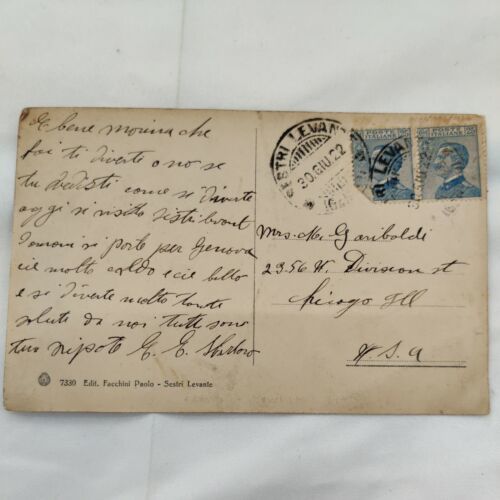 E bene monina che
fai ti diverte o no se
tu vedisti come si diverte
oggi si visito Sestri Levant
Domani si parte per Genova
cie molto caldo e cie bello
e si diverte molto tante
salute da noi tutti sono
tuo nipote E. E.
7330 Edit. Facchini Paolo - Sestri Levante
SESTRI LEVANTE
30.GIU.22
POSTE ITALIANE
Mrs. M. Gariboldi
2356 W. Division st
Chicago Ill
U.S.A